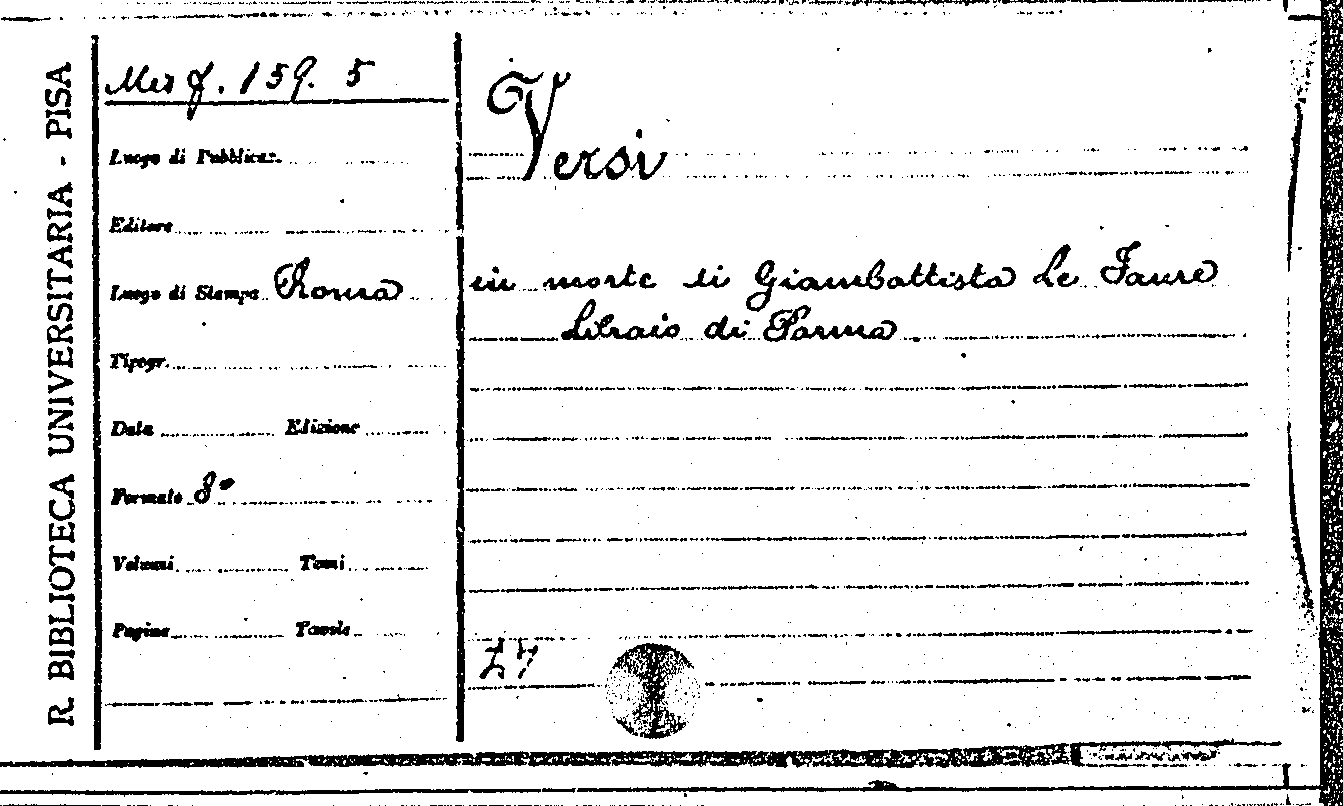 R. BIBLIOTECA UNIVERSITARIA - PISA
Misc. 159. 5
Luogo di Pubblicaz.
Editore
Luogo di Stampa Roma
Tipogr.
Data Edizione
Formato 8°
Volumi Tomi
Pagine Tavole
Versi
in morte di Giambattista Le Faure
libraio di Parma